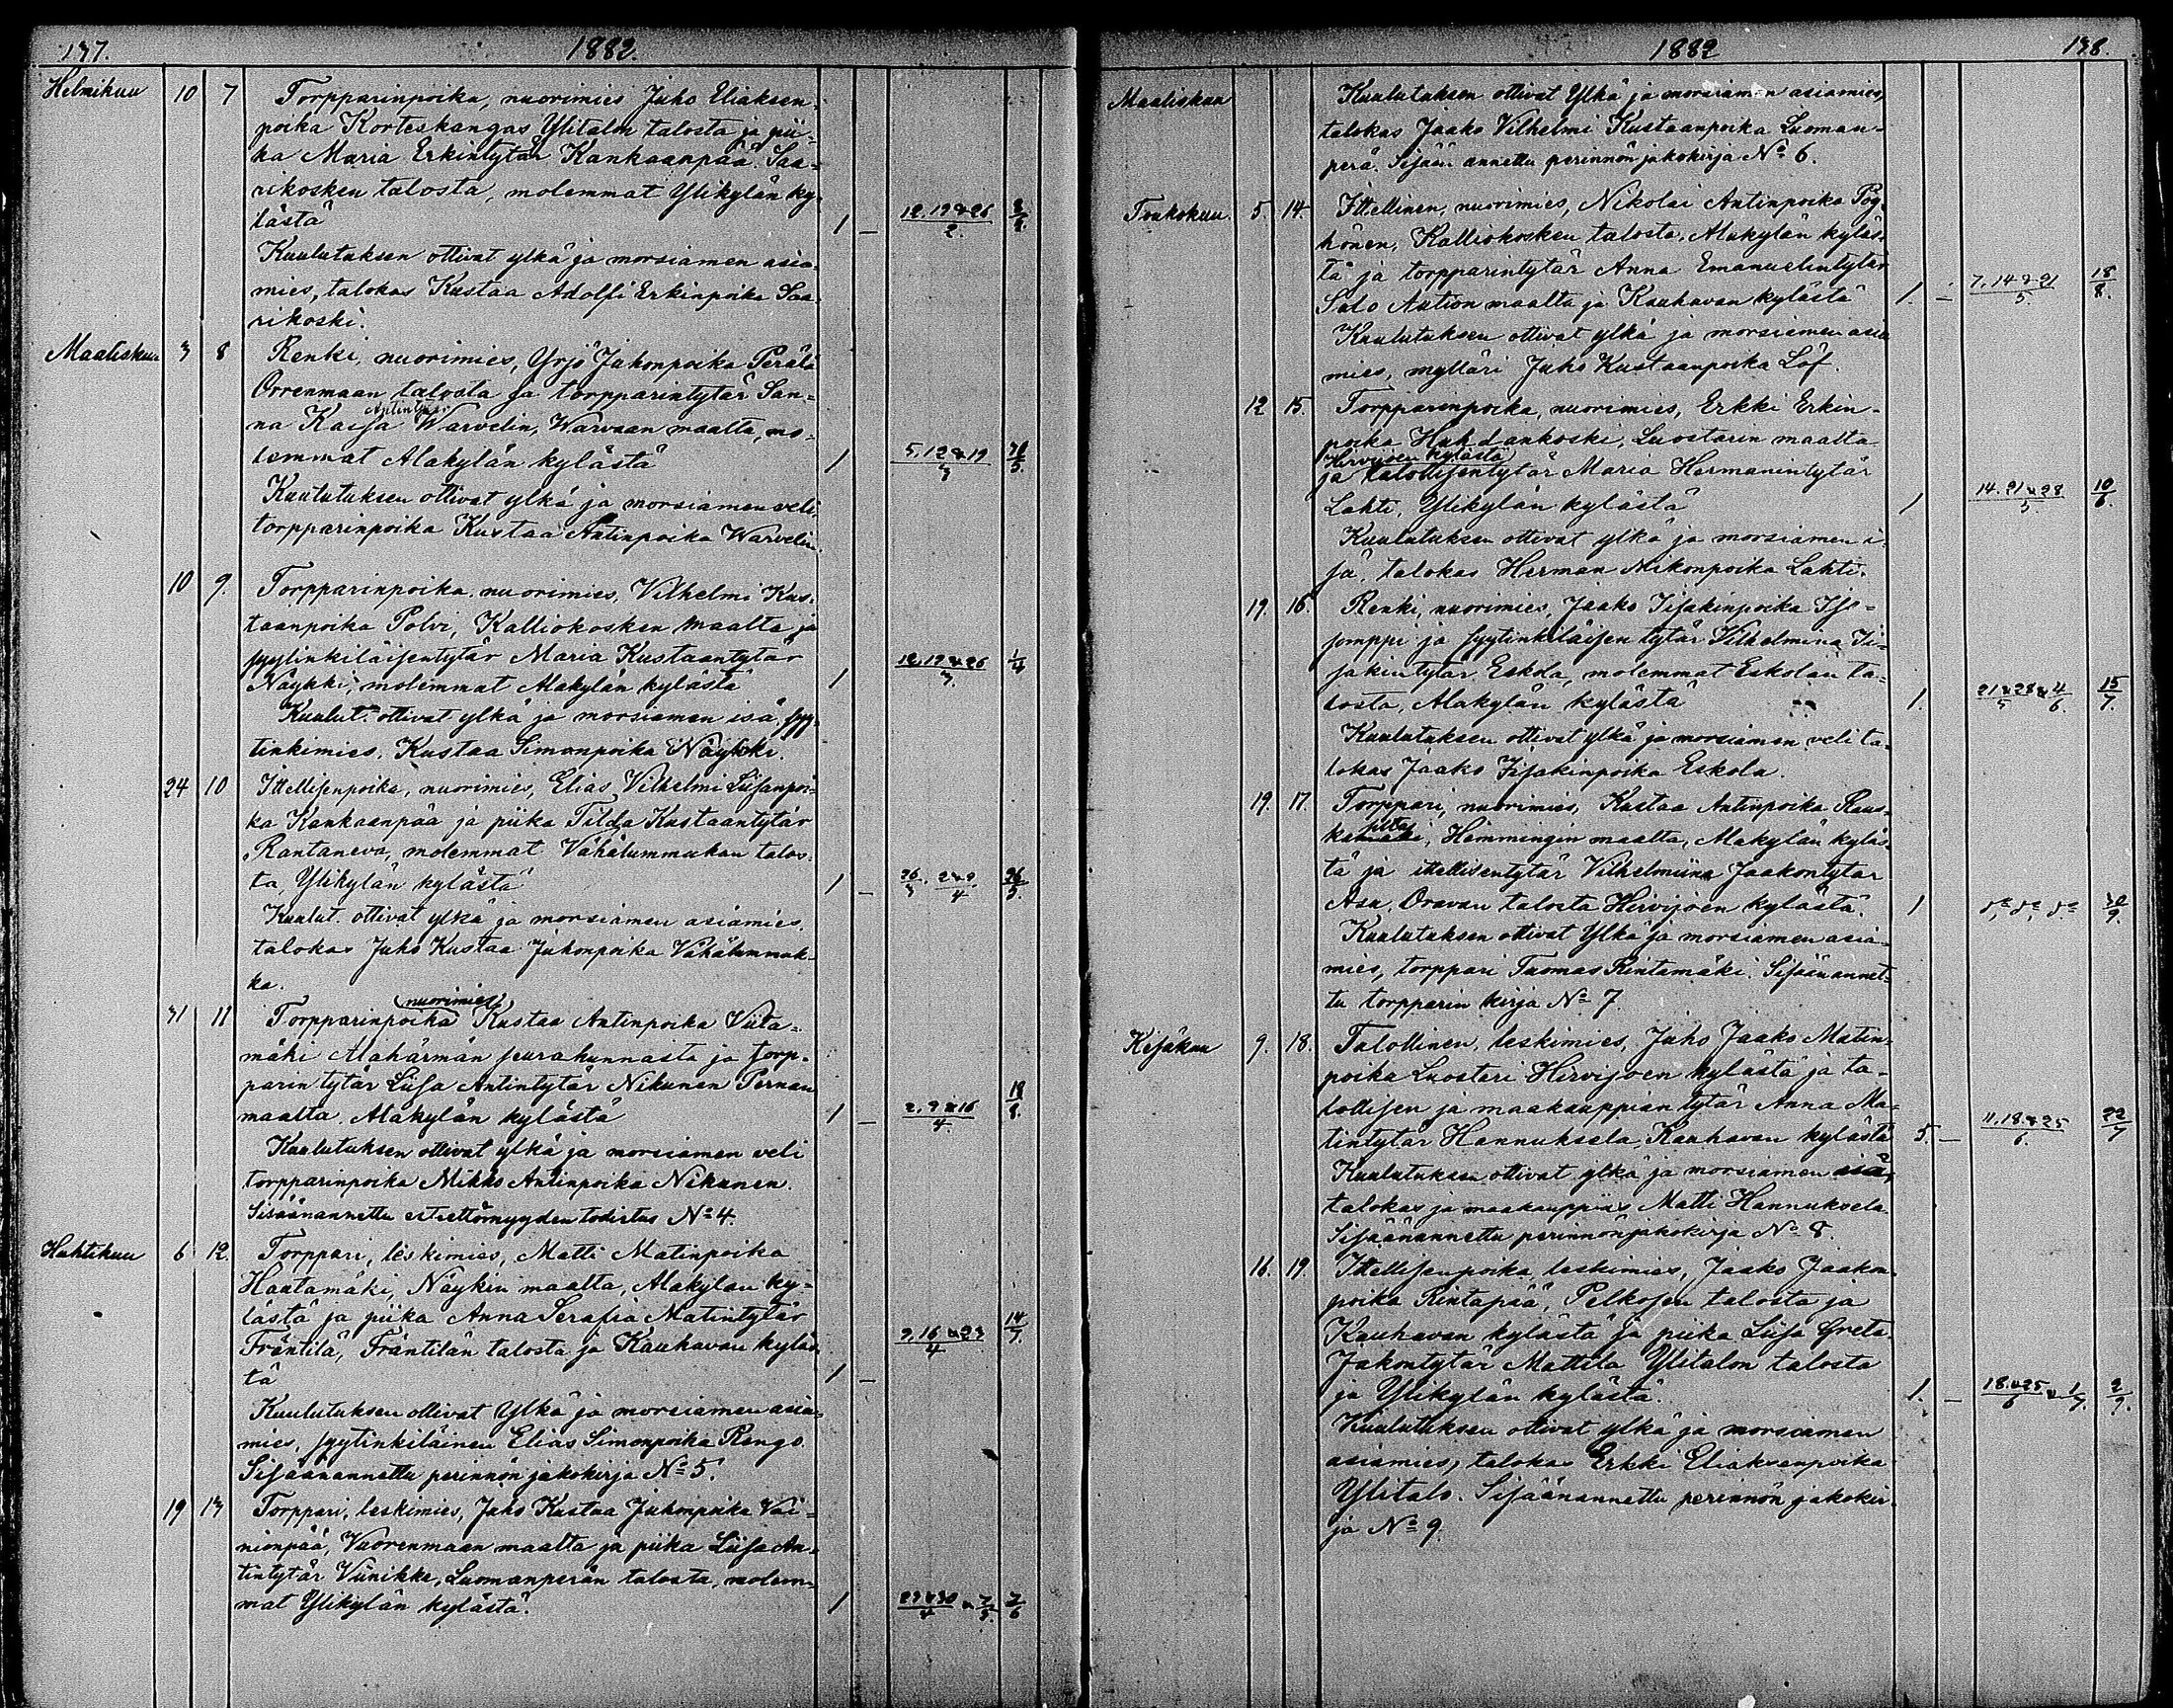 137. 1882.
Helmikuu 10 7 Torpparinpoika, nuorimies Juho Eliaksen-
poika Korteskangas Ylitalon talosta ja pii-
ka Maria Erkintytär Kankaanpää Saa-
rikosken talosta, molemmat Ylikylän ky-
lästä 1 — 12.19&26/2.
Kuulutuksen ottivat ylkä ja morsiamen asia-
mies, talokas Kustaa Adolfi Erkinpoika Saa-
rikoski.
Maaliskuu 3 8 Renki, nuorimies, Yrjö Juhonpoika Perälä
Orrenmaan talosta ja torpparintytär San-
na Kaisa Antintytär Warvelin, Warvaan maalta, mo-
lemmat Alakylän kylästä 1 5.12&19/3
Kuulutuksen ottivat ylkä ja morsiamen veli,
torpparinpoika Kustaa Antinpoika Warvelin.
10 9. Torpparinpoika, nuorimies, Vilhelmi Kus-
taanpoika Polvi, Kalliokosken maalta ja
syytinkiläisentytär Maria Kustaantytär
Näykki, molemmat Alakylän kylästä 1 12.19&26/3. 1/4
Kuulut. ottivat ylkä ja morsiamen isä, syy-
tinkimies, Kustaa Simonpoika Näykki.
24 10 Itellisenpoika, nuorimies, Elias Vilhelmi Liisanpoi-
ka Kankaanpää ja piika Tilda Kustaantytär
Rantaneva, molemmat Vähälummukan talos-
ta, Ylikylän kylästä 1 — 26/3. 2&9/4. 26/5.
Kuulut. ottivat ylkä ja morsiamen asiamies,
talokas Juho Kustaa Juhonpoika Vähälummuk-
ka.
31 11 Torpparinpoika (nuorimies) Kustaa Antinpoika Viita-
mäki Alahärmän seurakunnasta ja torp-
parintytär Liisa Antintytär Nikunen Pernan
maalta, Alakylän kylästä 1 — 2.9&16/4. 18/8.
Kuulutuksen ottivat ylkä ja morsiamen veli
torpparinpoika Mikko Antinpoika Nikunen.
Sisäänannettu esteettömyyden todistus No 4.
Huhtikuu 6 12. Torppari, leskimies, Matti Matinpoika
Hautamäki, Näykin maalta, Alakylän ky-
lästä ja piika Anna Serafia Matintytär
Fräntilä, Fräntilän talosta ja Kauhavan kyläs-
tä 1 — 9.16&23/4 14/7.
Kuulutuksen ottivat Ylkä ja morsiamen asia-
mies, syytinkiläinen Elias Simonpoika Rengo.
Sisäänannettu perinnön jakokirja No 5.
19 13 Torppari, leskimies, Juho Kustaa Juhonpoika Vai-
nionpää, Vuorenmaan maalta ja piika Liisa An-
tintytär Viinikka, Luomanperän talosta, molem-
mat Ylikylän kylästä. 1 23&30/4 & 7/5. 7/6
1882 138.
Maaliskuu Kuulutuksen ottivat Ylkä ja morsiamen asiamies,
talokas Jaako Vilhelmi Kustaanpoika Luoman-
perä. Sisään annettu perinnön jakokirja No 6.
Toukokuu. 5. 14. Itellinen, nuorimies, Nikolai Antinpoika Pöy-
hönen, Kalliokosken talosta, Alakylän kyläs-
tä ja torpparintytär Anna Emanuelintytär
Salo Aution maalta ja Kauhavan kylästä 1. — 7.14&21/5 18/8.
Kuulutuksen ottivat ylkä ja morsiamen asia
mies, mylläri Juho Kustaanpoika Löf.
12 15. Torpparinpoika, nuorimies, Erkki Erkin-
poika Huhdankoski, Luostarin maalta
Hirvijoen kylästä
ja talollisentytär Maria Hermanintytär
Lahti, Ylikylän kylästä 1 14.21&28/5. 10/6.
Kuulutuksen ottivat ylkä ja morsiamen i-
sä, talokas Herman Mikonpoika Lahti.
19. 16. Renki, nuorimies, Jaako Iisakinpoika Iso-
somppi ja syytinkiläisen tytär Vilhelmina Ii-
sakintytär Eskola, molemmat Eskolan ta-
losta, Alakylän kylästä 1. 21&28/5 & 4/6. 15/7.
Kuulutuksen ottivat ylkä ja morsiamen veli ta-
lokas Jaako Iisakinpoika Eskola.
19. 17. Torppari, nuorimies, Kustaa Antinpoika
Hemmingin maalta, Alakylän kyläs-
tä ja itellisentytär Vilhelmiina Jaakontytär
Asu, Oravan talosta Hirvijoen kylästä. 1 do, do, do 30/9.
Kuulutuksen ottivat Ylkä ja morsiamen asia-
mies, torppari Tuomas Rintamäki. Sisäänannet-
tu torpparin kirja No 7.
Kesäkuu 9. 18. Talollinen, leskimies, Juho Jaako Matin-
poika Luostari Hirvijoen kylästä ja ta-
lollisen ja maakauppian tytär Anna Ma-
tintytär Hannuksela, Kauhavan kylästä 5. — 11.18&25/6. 22/7
Kuulutuksen ottivat ylkä ja morsiamen isä,
talokas ja maakauppias Matti Hannuksela.
Sisäänannettu perinnönjakokirja No 8.
16. 19. Itellisenpoika, leskimies, Jaako Jaakon-
poika Rintapää, Pelkosen talosta ja
Kauhavan kylästä ja piika Liisa Greta
Jakontytär Mattila Ylitalon talosta
ja Ylikylän kylästä. 1. — 18&25/6 & 1/7. 2/9.
Kuulutuksen ottivat ylkä ja morsiamen
asiamies, talokas Erkki Eliaksenpoika
Ylitalo. Sisäänannettu perinnön jakokir-
ja No 9.